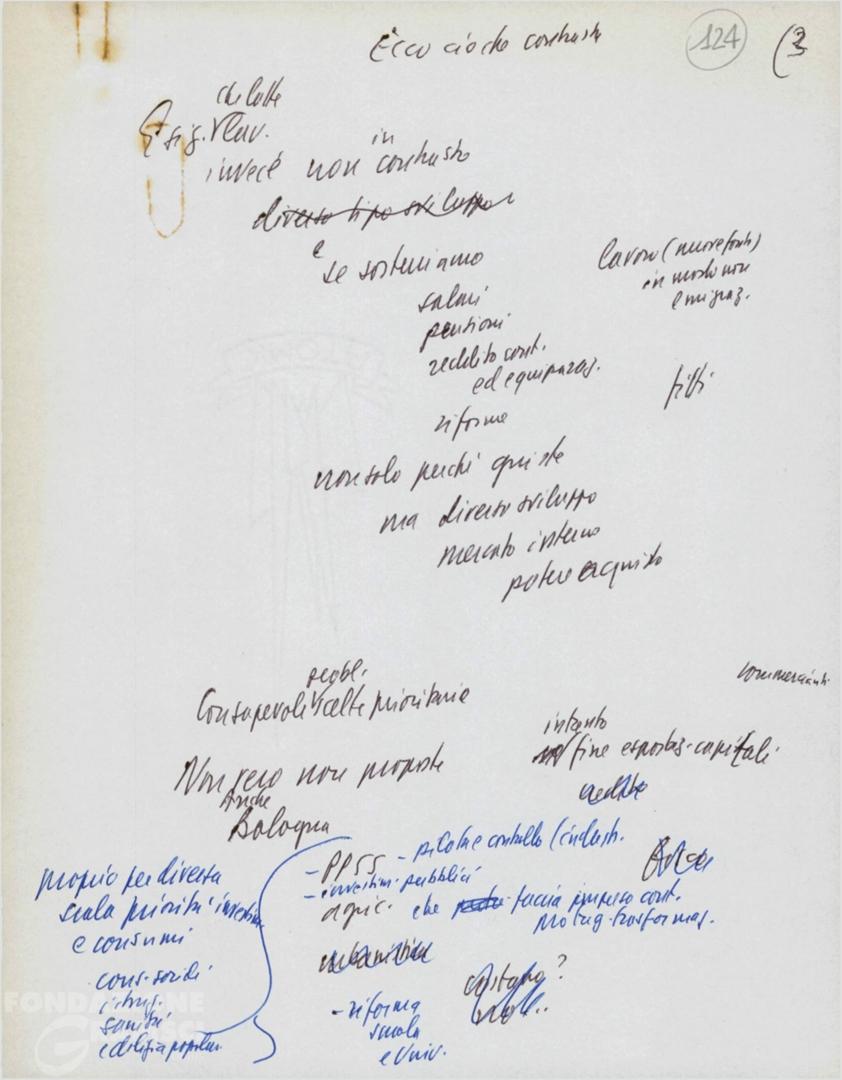 Ecco ciò che contrasta
124
(3
che lotte
sig. lav.
in
invece non contrasto
diverso tipo sviluppo
e
se sosteniamo
lavoro (nuove fonti)
in modo non
emigraz.
salari
pensioni
reddito cont.
ed equiparaz.
fitti
riforme
non solo perché giuste
ma diverso sviluppo
mercato interno
potere acquisto
commercianti
probl.
Consapevoli scelte prioritarie
intanto
fine esportaz. capitali
Non vero non proposte
credito
Anche
Bologna
proprio per diversa
scala priorità investim.
e consumi
cons. sociali
istruz.
sanità
edilizia popolare
- PPSS - pilotare controllo (industr.
- investim. pubblici
agric. che faccia impresa cont.
protag. trasformaz.
urbanistica
costano?
- riforma
scuola
e Univ.
FONDAZIONE
GRAMSCI